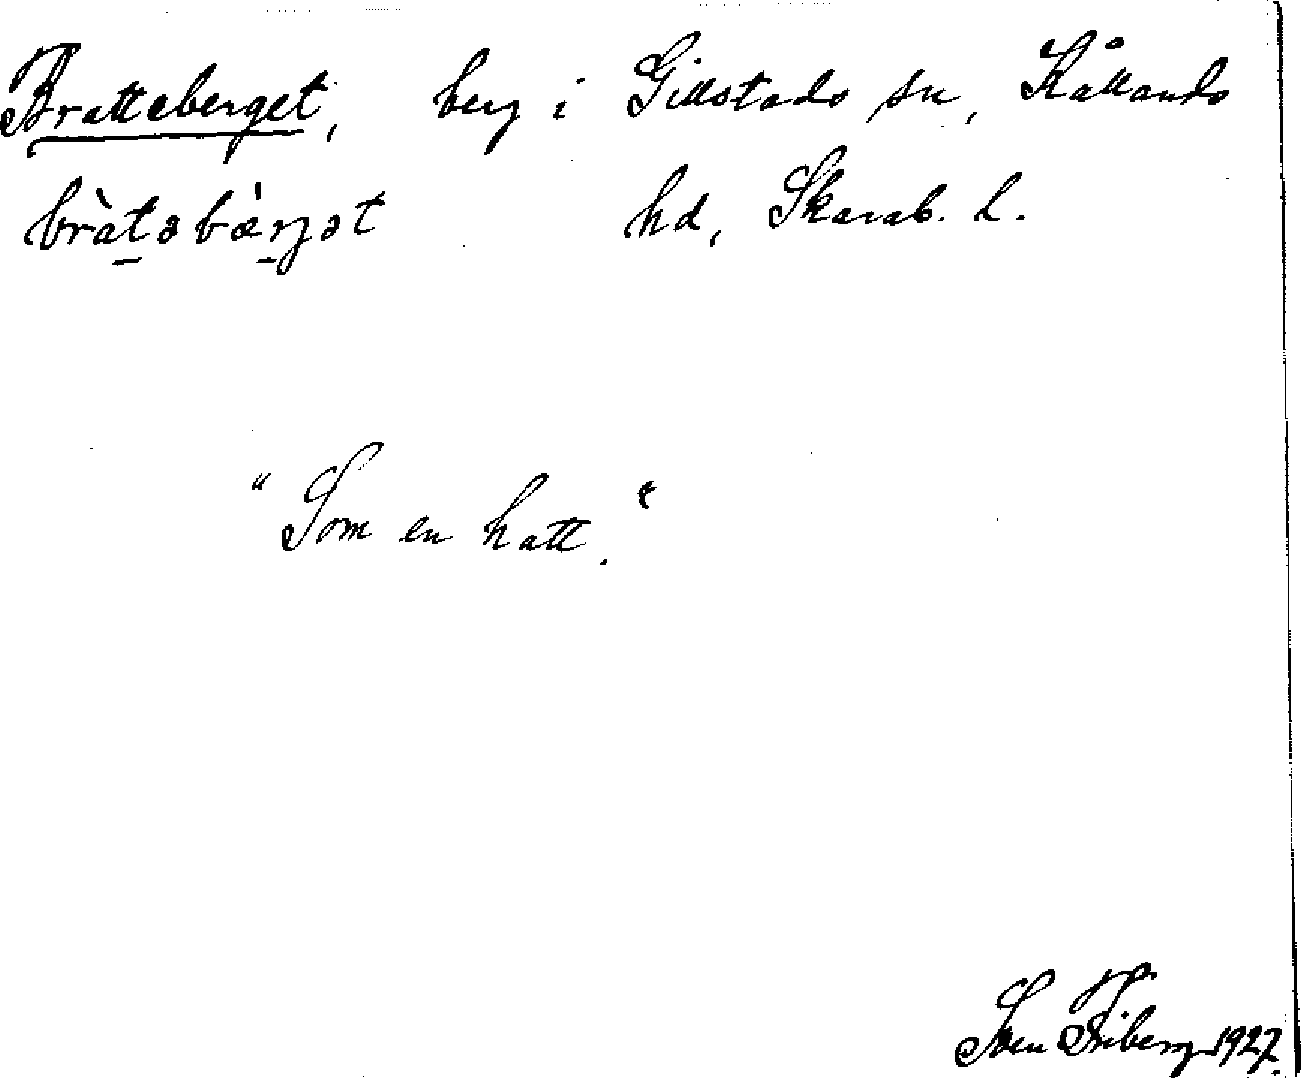 Bratteberget, berg i Gillstads sn, Kållands
bràtəbàrjət hd, Skarab. l.
"Som en hatt."
Sven Friberg 1927.